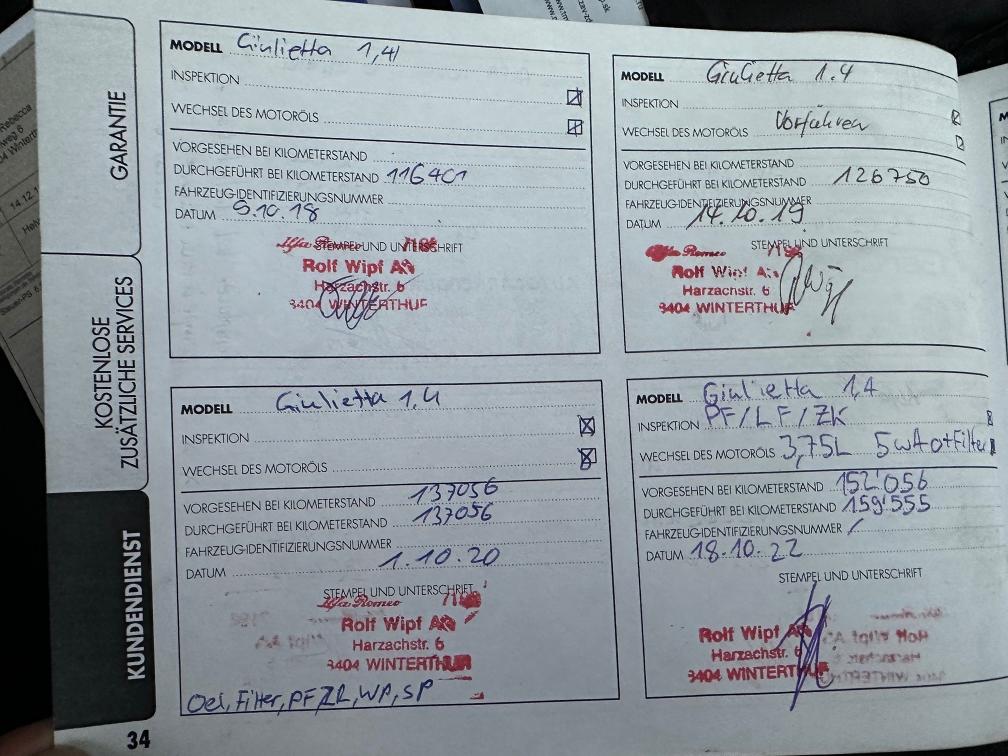 GARANTIE
KOSTENLOSE
ZUSÄTZLICHE SERVICES
KUNDENDIENST
MODELL Giulietta 1,4l
INSPEKTION
WECHSEL DES MOTORÖLS
VORGESEHEN BEI KILOMETERSTAND
DURCHGEFÜHRT BEI KILOMETERSTAND 116401
FAHRZEUG-IDENTIFIZIERUNGSNUMMER
DATUM 5.10.18
STEMPEL UND UNTERSCHRIFT
Alfa Romeo
Rolf Wipf AG
Harzachstr. 6
8404 WINTERTHUR
MODELL Giulietta 1.4
INSPEKTION
WECHSEL DES MOTORÖLS Vorführen
VORGESEHEN BEI KILOMETERSTAND
DURCHGEFÜHRT BEI KILOMETERSTAND 126750
FAHRZEUG-IDENTIFIZIERUNGSNUMMER
DATUM 14.10.19
STEMPEL UND UNTERSCHRIFT
Alfa Romeo
Rolf Wipf AG
Harzachstr. 6
8404 WINTERTHUR
MODELL Giulietta 1,4
INSPEKTION
WECHSEL DES MOTORÖLS
VORGESEHEN BEI KILOMETERSTAND 137056
DURCHGEFÜHRT BEI KILOMETERSTAND 137056
FAHRZEUG-IDENTIFIZIERUNGSNUMMER
DATUM 1.10.20
STEMPEL UND UNTERSCHRIFT
Alfa Romeo
Rolf Wipf AG
Harzachstr. 6
8404 WINTERTHUR
Oel, Filter, PF, ZR, WP, SP
MODELL Giulietta 1,4
INSPEKTION PF/LF/ZK
WECHSEL DES MOTORÖLS 3,75L 5w40+Filter
VORGESEHEN BEI KILOMETERSTAND 152'056
DURCHGEFÜHRT BEI KILOMETERSTAND 159'555
FAHRZEUG-IDENTIFIZIERUNGSNUMMER /
DATUM 18.10.22
STEMPEL UND UNTERSCHRIFT
Rolf Wipf AG
Harzachstr. 6
8404 WINTERTHUR
34